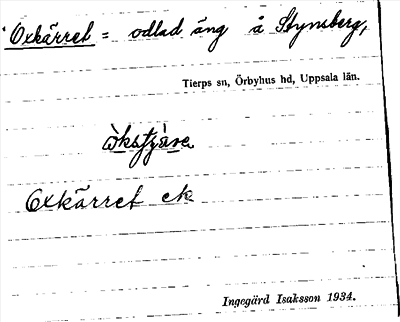 Oxkärret = odlad äng å Stynsberg,
Tierps sn, Örbyhus hd, Uppsala län.
Oxkärret ek
Ingegärd Isaksson 1934.